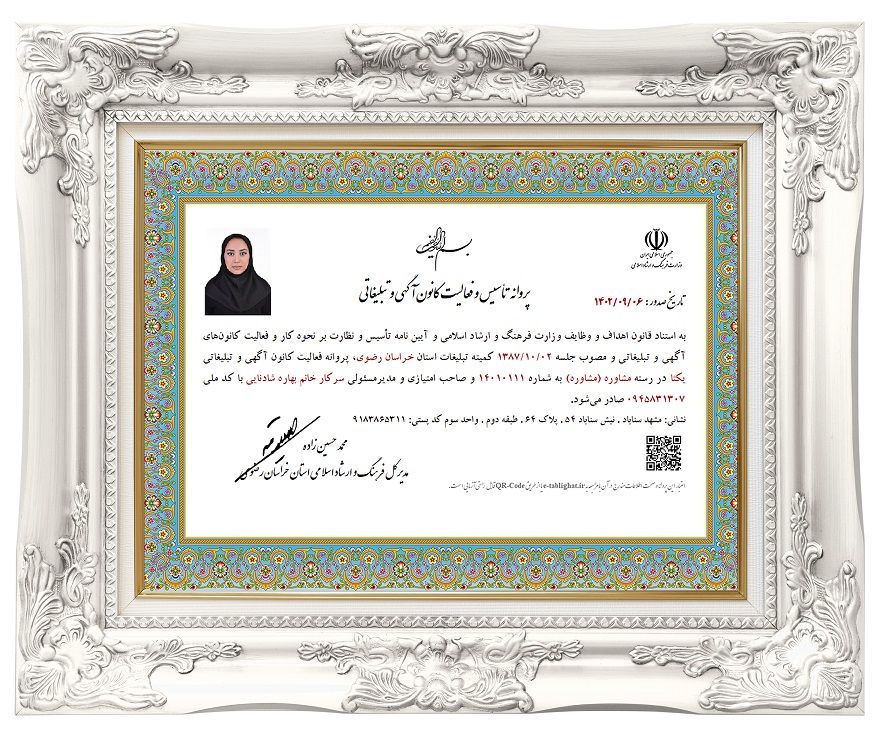 جمهوری اسلامی ایران
وزارت فرهنگ و ارشاد اسلامی
پروانه تأسیس و فعالیت کانون آگهی و تبلیغاتی
تاریخ صدور: ۱۴۰۲/۰۹/۰۶
به استناد قانون اهداف و وظایف وزارت فرهنگ و ارشاد اسلامی و آیین نامه تأسیس و نظارت بر نحوه کار و فعالیت کانون‌های
آگهی و تبلیغاتی و مصوب جلسه ۱۳۸۷/۱۰/۰۲ کمیته تبلیغات استان خراسان رضوی، پروانه فعالیت کانون آگهی و تبلیغاتی
یکتا در رسته مشاوره (مشاوره) به شماره ۱۴۰۱۰۱۱۱ و صاحب امتیازی و مدیرمسئولی سرکار خانم بهاره شادنایی با کد ملی
۰۹۴۵۸۳۱۳۰۷ صادر می‌شود.
نشانی: مشهد سناباد . نبش سناباد ۵۴ . پلاک ۶۴ . طبقه دوم . واحد سوم کد پستی: ۹۱۸۳۸۶۵۳۱۱
محمد حسین زاده
مدیرکل فرهنگ و ارشاد اسلامی استان خراسان رضوی
اعتبار این پروانه و صحت اطلاعات مندرج در آن با مراجعه به e-tablighat.ir یا از طریق QR-Code قابل راستی آزمایی است.